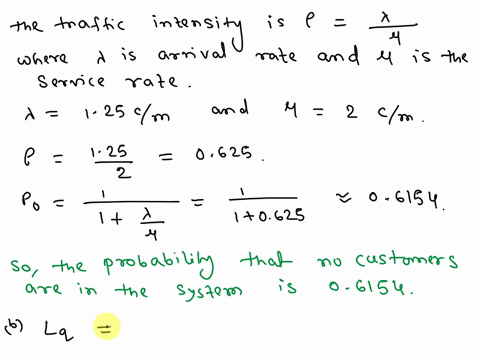 the traffic intensity is ρ = λ/μ
where λ is arrival rate and μ is the
service rate.
λ = 1.25 c/m and μ = 2 c/m.
ρ = 1.25/2 = 0.625.
P₀ = 1/(1 + λ/μ) = 1/(1+0.625) ≈ 0.6154.
So, the probability that no customers
are in the system is 0.6154.
(b) Lq =